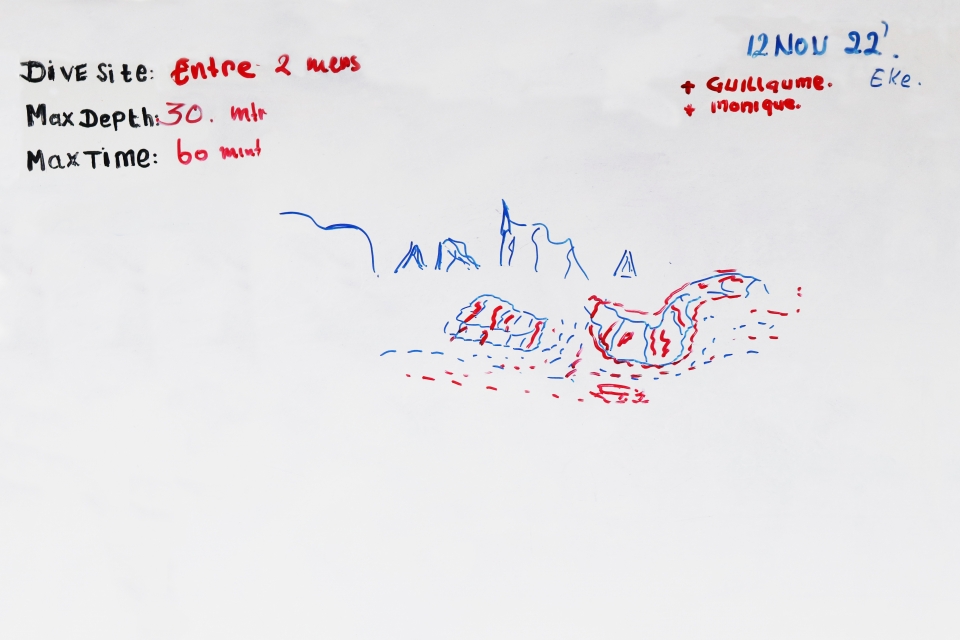 Dive Site: Entre 2 mers
Max Depth: 30. mtr
Max Time: 60 mint
12 Nov 22'.
+ Guillaume. Eke.
+ Monique.